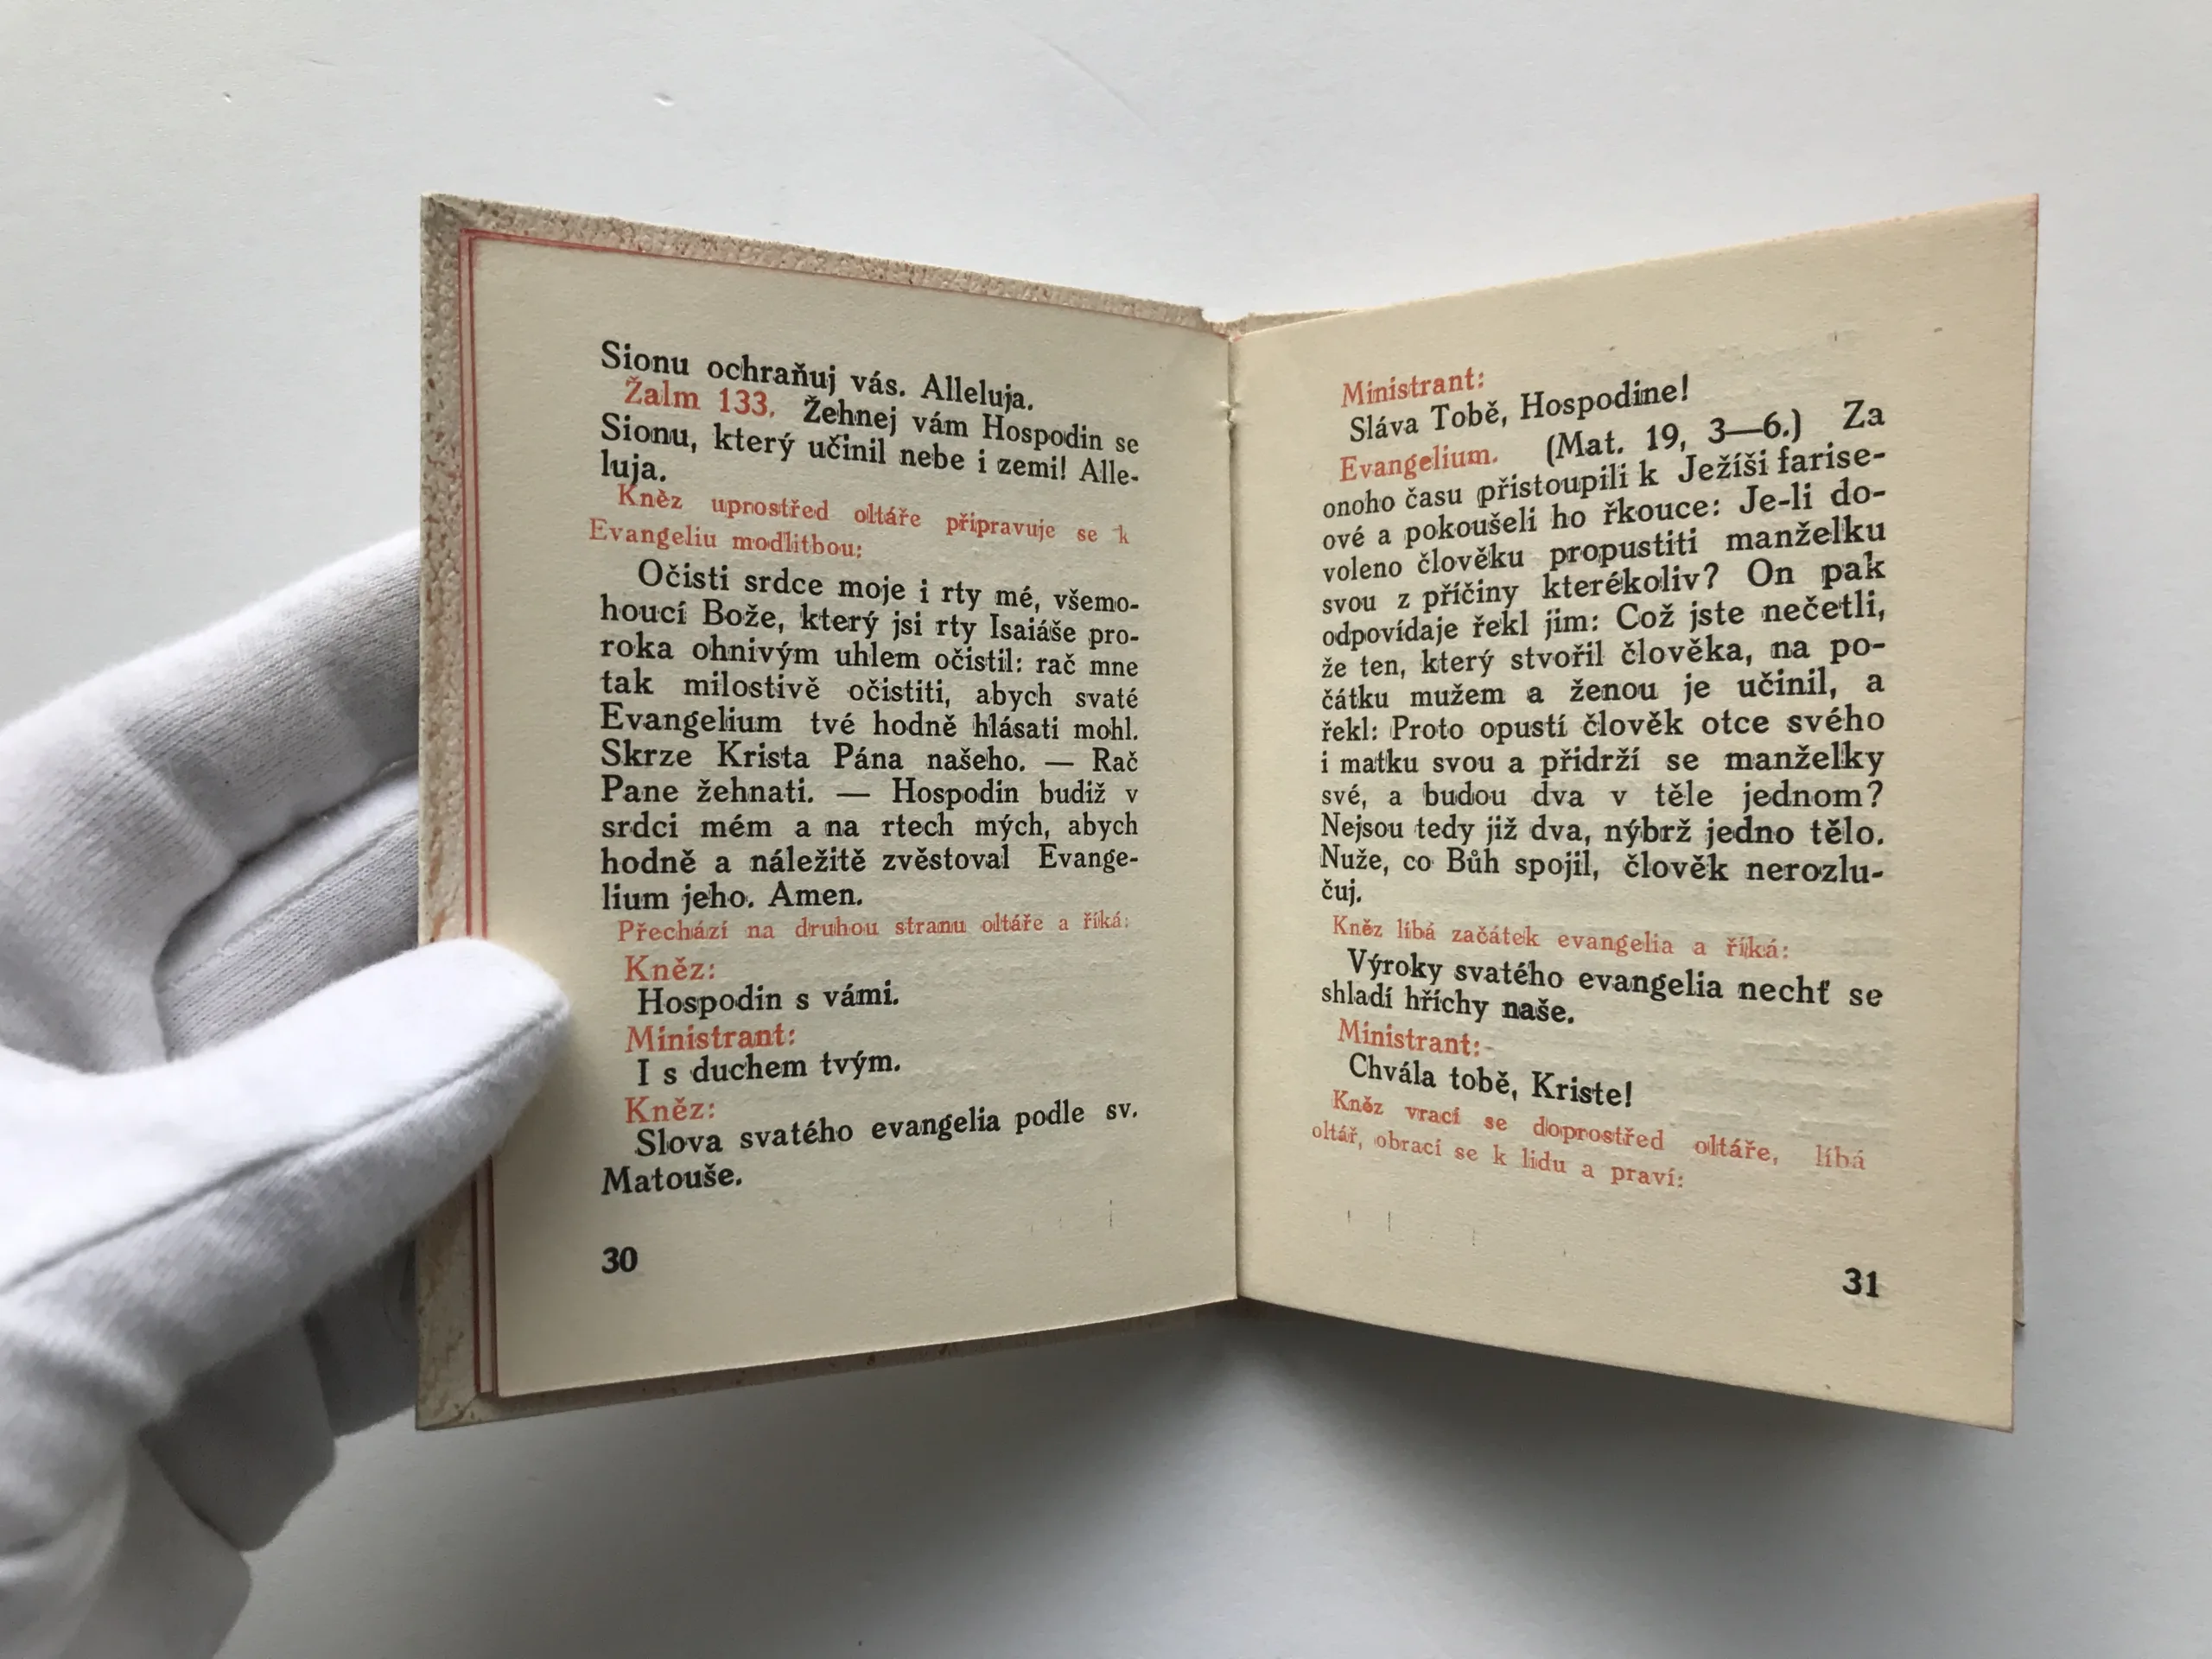 Sionu ochraňuj vás. Alleluja.
Žalm 133. Žehnej vám Hospodin se
Sionu, který učinil nebe i zemi! Alle-
luja.
Kněz uprostřed oltáře připravuje se k
Evangeliu modlitbou:
Očisti srdce moje i rty mé, všemo-
houcí Bože, který jsi rty Isaiáše pro-
roka ohnivým uhlem očistil: rač mne
tak milostivě očistiti, abych svaté
Evangelium tvé hodně hlásati mohl.
Skrze Krista Pána našeho. — Rač
Pane žehnati. — Hospodin budiž v
srdci mém a na rtech mých, abych
hodně a náležitě zvěstoval Evange-
lium jeho. Amen.
Přechází na druhou stranu oltáře a říká:
Kněz:
Hospodin s vámi.
Ministrant:
I s duchem tvým.
Kněz:
Slova svatého evangelia podle sv.
Matouše.
30
Ministrant:
Sláva Tobě, Hospodine!
Evangelium. (Mat. 19, 3—6.) Za
onoho času přistoupili k Ježíši farise-
ové a pokoušeli ho řkouce: Je-li do-
voleno člověku propustiti manželku
svou z příčiny kterékoliv? On pak
odpovídaje řekl jim: Což jste nečetli,
že ten, který stvořil člověka, na po-
čátku mužem a ženou je učinil, a
řekl: Proto opustí člověk otce svého
i matku svou a přidrží se manželky
své, a budou dva v těle jednom?
Nejsou tedy již dva, nýbrž jedno tělo.
Nuže, co Bůh spojil, člověk nerozlu-
čuj.
Kněz líbá začátek evangelia a říká:
Výroky svatého evangelia nechť se
shladí hříchy naše.
Ministrant:
Chvála tobě, Kriste!
Kněz vrací se doprostřed oltáře, líbá
oltář, obrací se k lidu a praví:
31